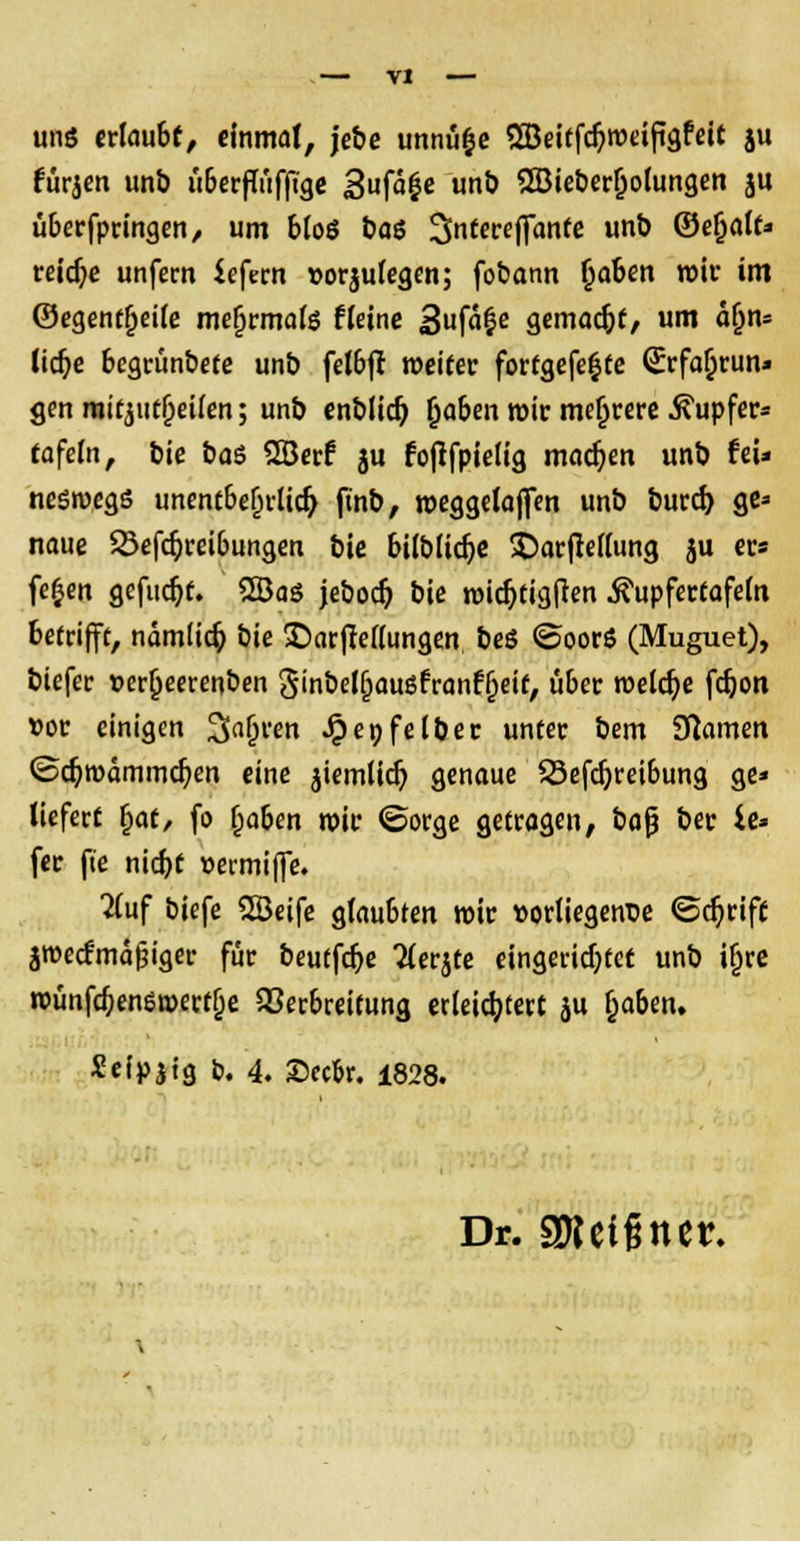 — VI —
uns erlaubt, einmal, jede unnütze Weitschweifigkeit zu
kürzen und überflüssige Zusätze und Wiederholungen zu
überspringen, um blos das Interessante und Gehalt-
reiche unsern Lesern vorzulegen; sodann haben wir im
Gegentheile mehrmals kleine Zusätze gemacht, um ähn-
liche begründete und selbst weiter fortgesetzte Erfahrun-
gen mitzutheilen; und endlich haben wir mehrere Kupfer-
tafeln, die das Werk zu kostspielig machen und kei-
neswegs unentbehrlich sind, weggelassen und durch ge-
naue Beschreibungen die bildliche Darstellung zu er-
setzen gesucht. Was jedoch die wichtigsten Kupfertafeln
betrifft, nämlich die Darstellungen des Soors (Muguet),
dieser verheerenden Findelhauskrankheit, über welche schon
vor einigen Jahren Heyfelder unter dem Namen
Schwämmchen eine ziemlich genaue Beschreibung ge-
liefert hat, so haben wir Sorge getragen, daß der Le-
ser sie nicht vermisse.
Auf diese Weise glaubten wir vorliegende Schrift
zweckmäßiger für deutsche Aerzte eingerichtet und ihre
wünschenswerthe Verbreitung erleichtert zu haben.
Leipzig d. 4. Decbr. 1828.
Dr. Meißner.